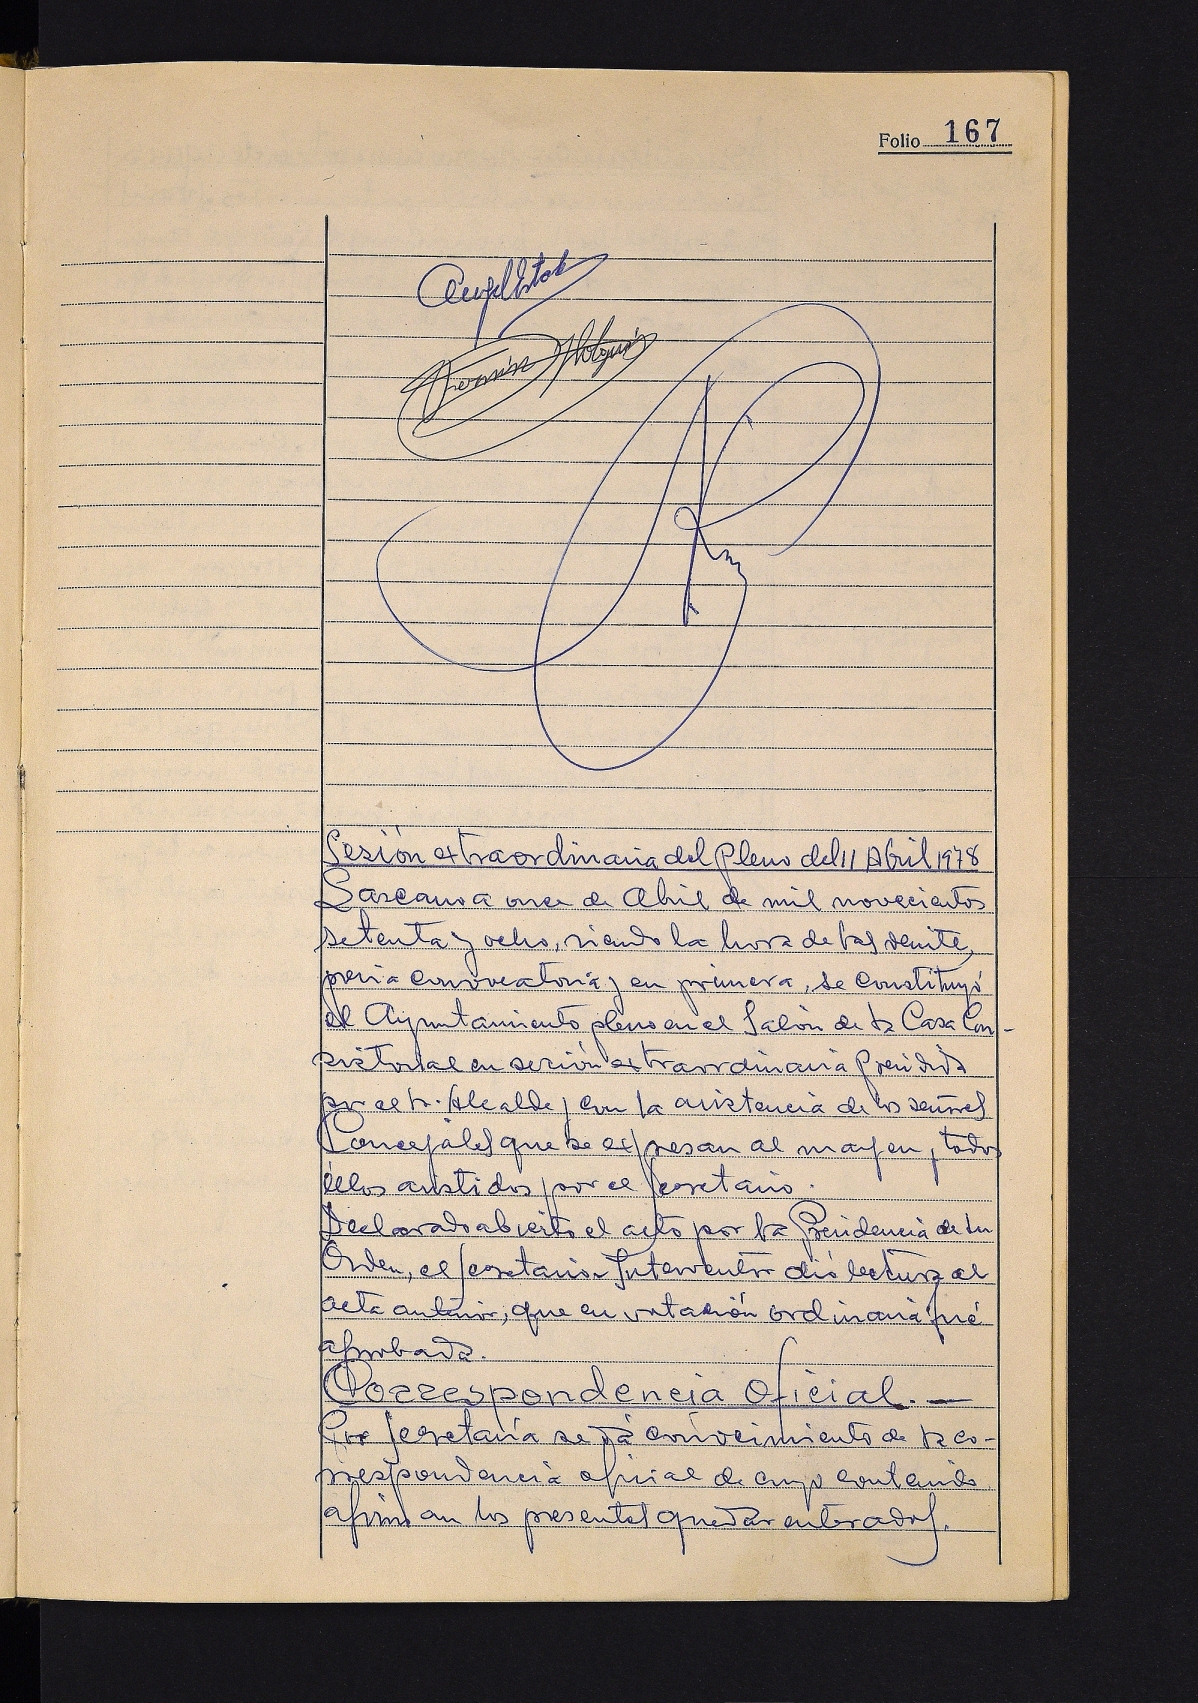 Folio 167
Sesión extraordinaria del Pleno del 11 Abril 1978
Lazcano a once de Abril de mil novecientos
setenta y ocho, siendo la hora de las veinte,
previa convocatoria y en primera, se constituyó
el Ayuntamiento pleno en el Salón de la Casa Con-
sistorial en sesión extraordinaria Presidida
por el Sr. Alcalde y con la asistencia de los señores
Concejales que se expresan al margen, todos
ellos asistidos por el Secretario.
Declarado abierto el acto por la Presidencia de su
Orden, el Secretario-Interventor dió lectura al
acta anterior, que en votación ordinaria fué
aprobada.
Correspondencia Oficial.—
Por Secretaría se dá conocimiento de la co-
rrespondencia oficial de cuyo contenido
afirman los presentes quedar enterados.